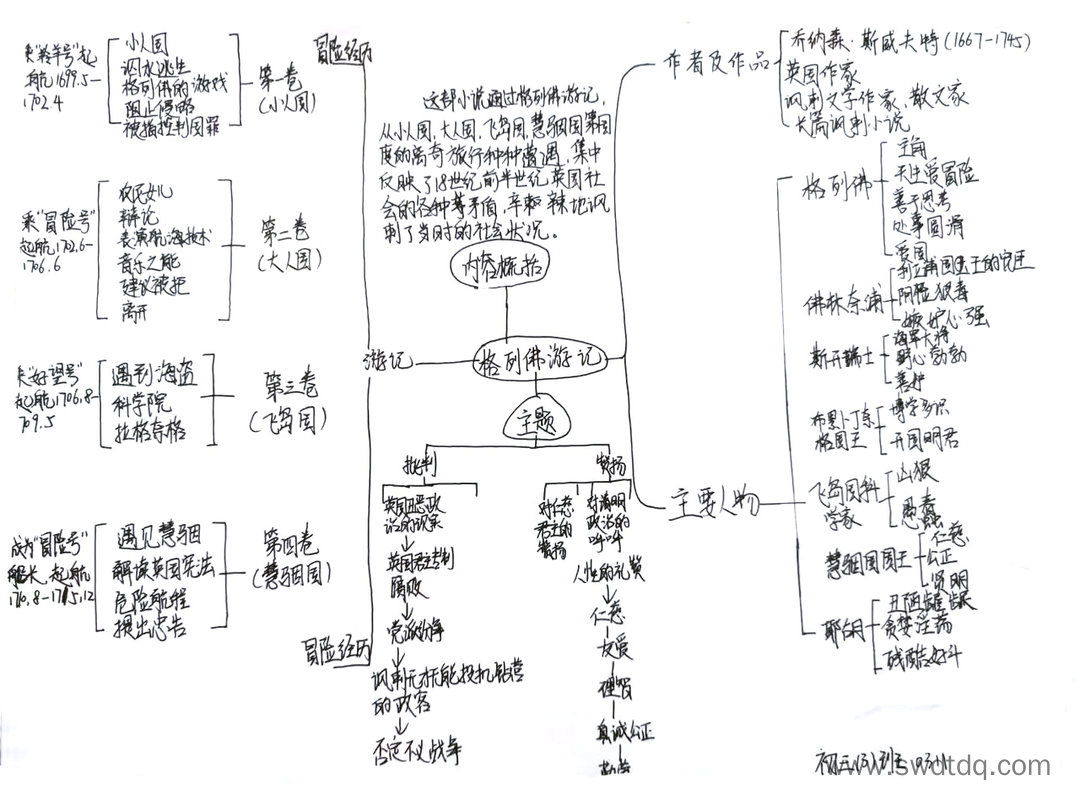 冒险经历
乘"羚羊号"起
航1699.5-
1702.4
小人国
泅水逃生
格列佛的游戏
阻止侵略
被指控判国罪
第一卷
(小人国)
乘"冒险号"
起航1702.6-
1706.6
农民女儿
辩论
表演航海技术
音乐之能
建议被拒
离开
第二卷
(大人国)
乘"好望号"
起航1706.8-
1709.5
遇到海盗
科学院
拉格奈格
第三卷
(飞岛国)
成为"冒险号"
船长、起航
1710.8-1715.12
遇见慧骃
解读英国宪法
危险航程
提出忠告
第四卷
(慧骃国)
冒险经历
游记
这部小说通过格列佛游记,
从小人国,大人国,飞岛国,慧骃国等国
度的离奇旅行种种遭遇,集中
反映了18世纪前半世纪英国社
会的各种等矛盾,辛辣地讽
刺了当时的社会状况。
内容概括
格列佛游记
主题
批判
英国丑恶政
治的现象
英国君主专制
腐败
党派纷争
讽刺无才无能投机钻营
的政客
否定不义战争
赞扬
对仁慈
君主的
赞扬
对清明
政治的
呼吁
人性的礼赞
仁慈
友爱
理智
真诚公正
作者及作品
乔纳森·斯威夫特(1667-1745)
英国作家
讽刺文学作家、散文家
长篇讽刺小说
主要人物
格列佛
主角
天生爱冒险
善于思考
处事圆滑
爱国
佛林奈浦
利立浦国国王的宠臣
阴险狠毒
嫉妒心强
斯开瑞士
海军大将
野心勃勃
善妒
布罗卜丁奈
格国王
博学多识
开国明君
飞岛国科
学家
凶狠
愚蠢
慧骃国国王
仁慈
公正
贤明
耶胡
丑陋龌龊
贪婪淫荡
残酷好斗
初三(3)班
www.swdtdq.com